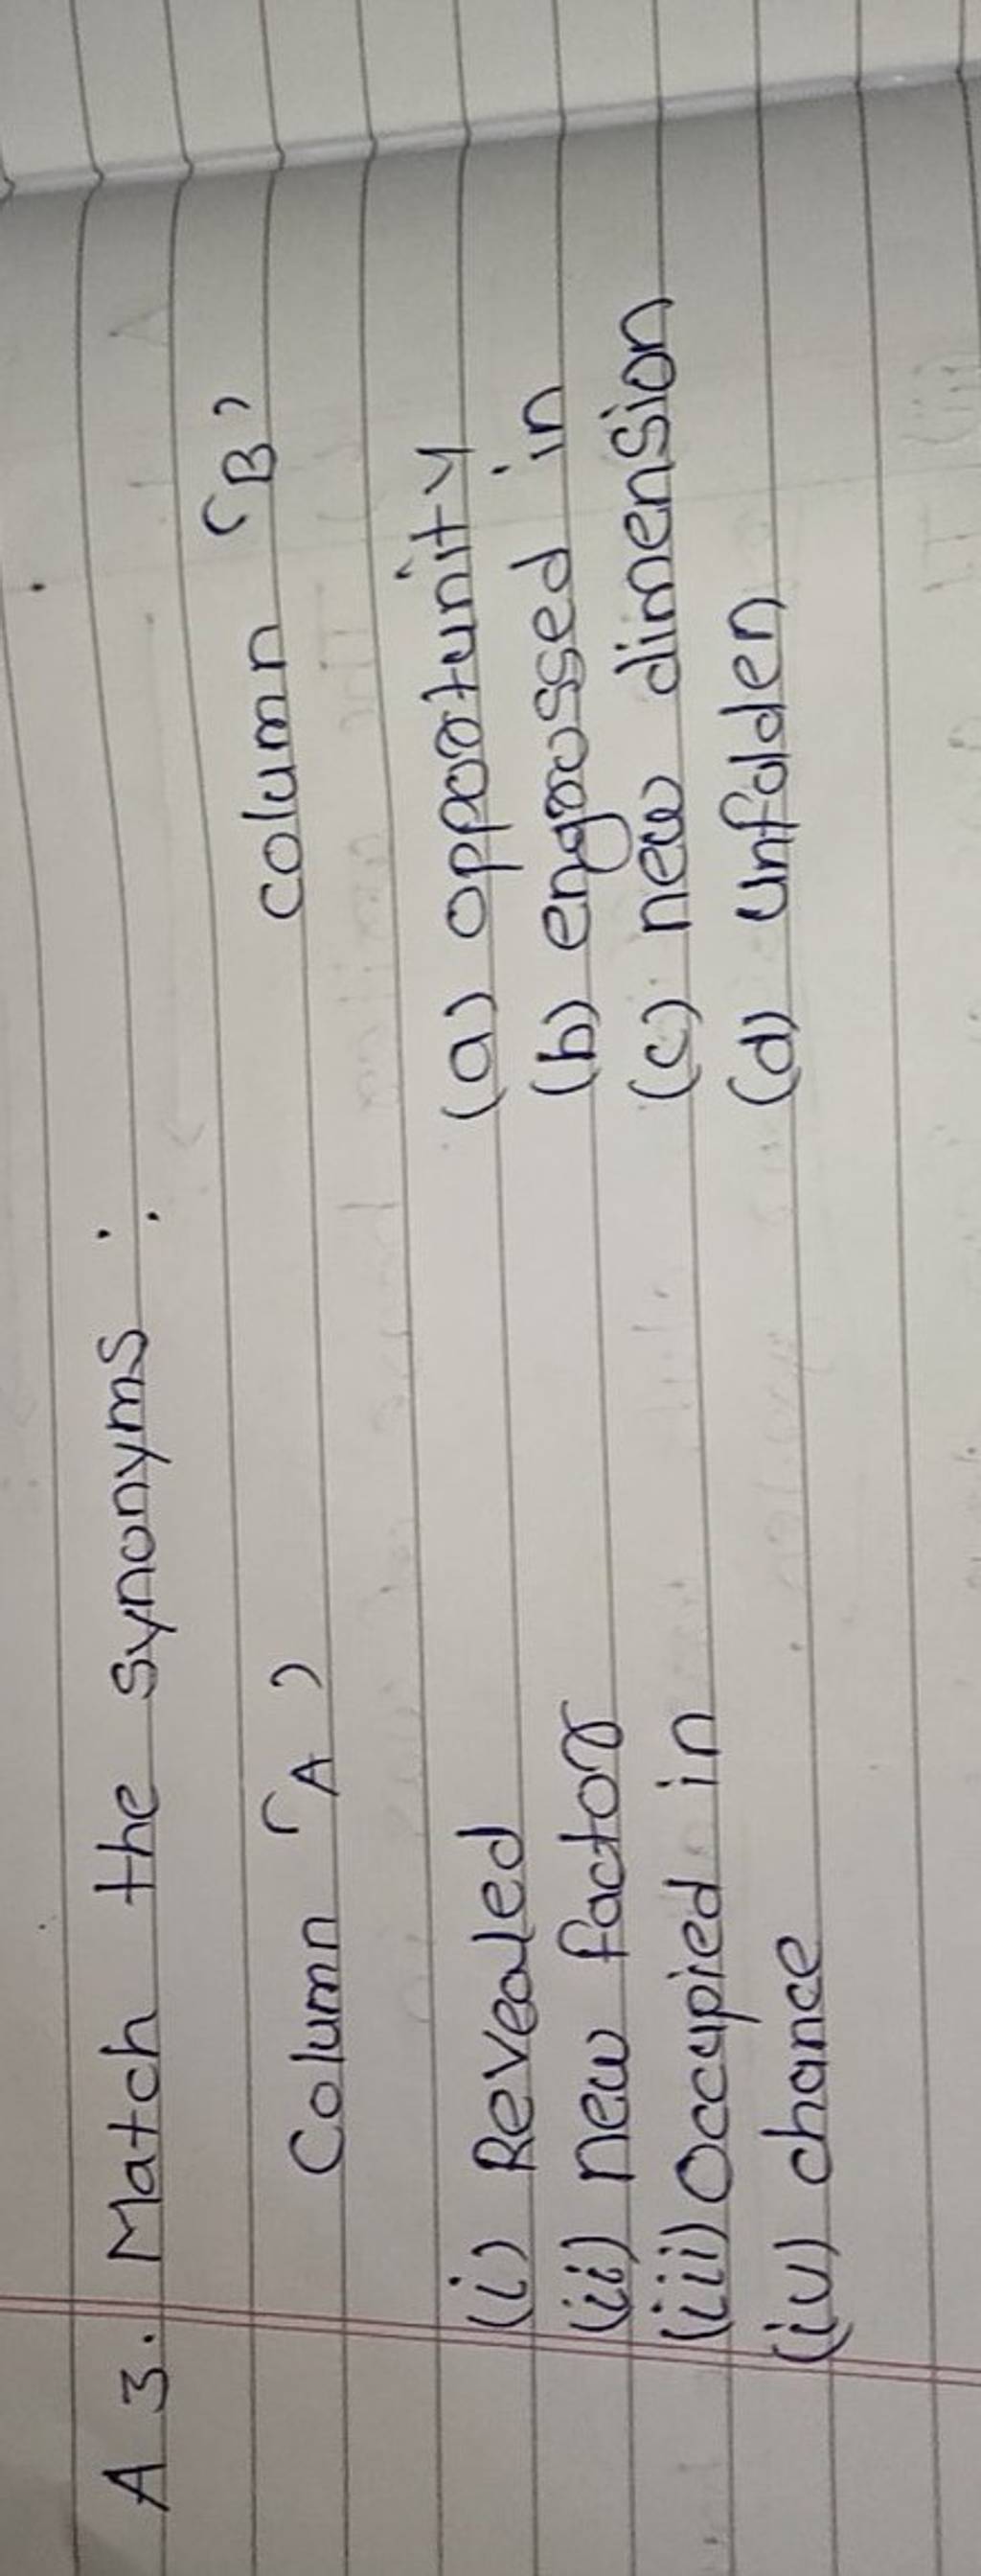 A 3. Match the synonyms :
Column 'A' column 'B'
(i) Revealed (a) opportunity
(ii) new factor (b) engrossed in
(iii) Occupied in (c) new dimension
(iv) chance (d) unfolden